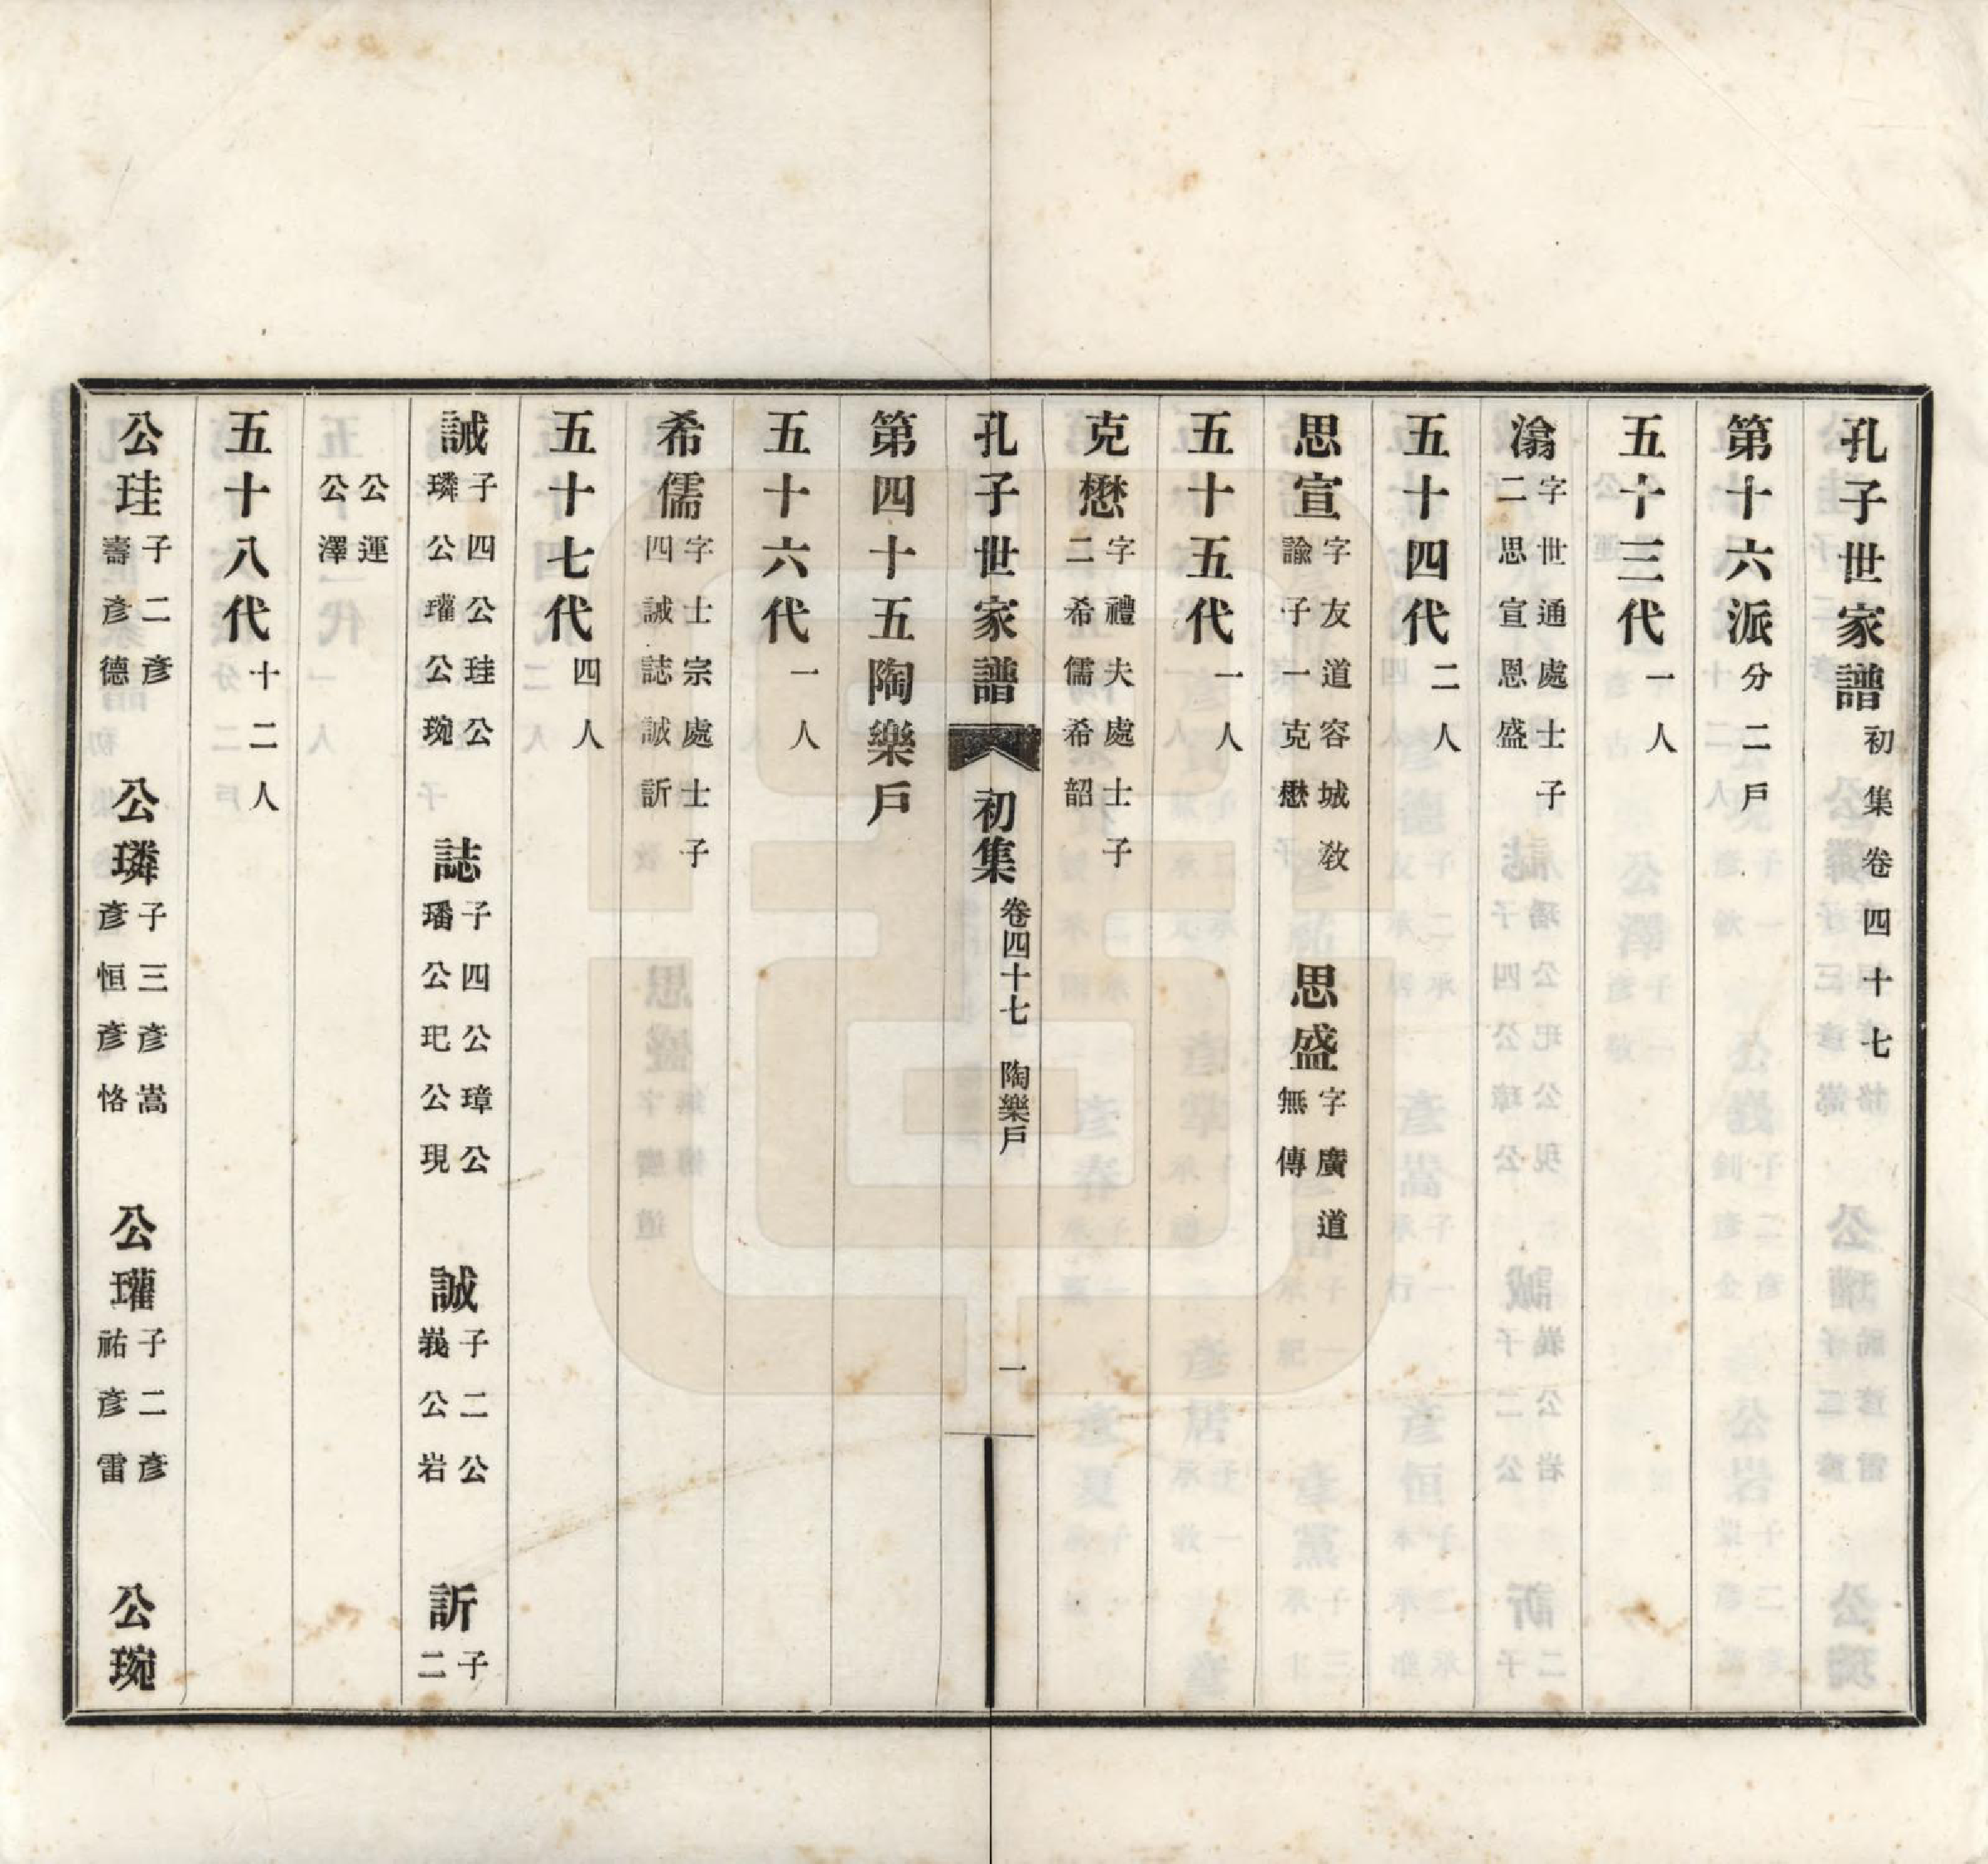 孔子世家譜初集卷四十七
第十六派分二戶
五十三代一人
滃字世通處士子二思宣恩盛
五十四代二人
思宣字友道容城教諭子一克懋 思盛字廣道無傳
五十五代一人
克懋字禮夫處士子二希儒希韶
孔子世家譜 初集 卷四十七 陶樂戶 一
第四十五陶樂戶
五十六代一人
希儒字士宗處士子四誠誌諴訢
五十七代四人
誠子四公珪公璘公瓘公琬 誌子四公璋公璠公玘公現 諴子二公峩公岩 訢子二
公運公澤
五十八代十二人
公珪子二彥壽彥德 公璘子三彥嵩彥恒彥恪 公瓘子二彥祐彥雷 公琬